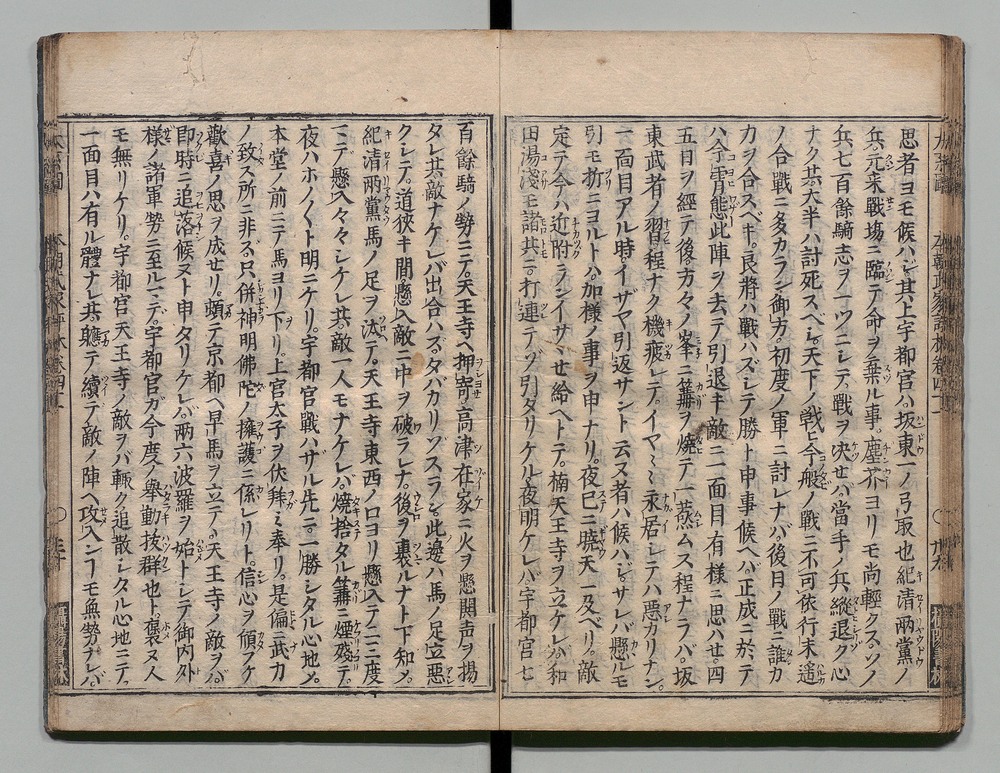 思者ヨモ候ハジ其上宇都官ハ坂東一ノ弓取也紀清兩黨ノ
兵元来戰塲ニ臨テ命ヲ棄ル事塵芥ヨリモ尚輕クスソノ
兵七百餘騎志ヲ一ツニシテ戰ヲ决セハ當手ノ兵縱退ク心
ナク共大半ハ討死スベシ天下ノ戰今般ノ戰ニ不可依行末遙
ノ合戰ニ多カラン御方初度ノ軍ニ討レナバ後日ノ戰ニ誰カ
力ヲ合スベキ良將ハ戰ハズシテ勝ト申事候ヘバ正成ニ於テ
ハ今宵態此陣ヲ去テ引退キ敵ニ一面目有様ニ思ハセ四
五日ヲ經テ後方々ノ峯ニ篝ヲ燒テ一蒸ムス程ナラバ坂
東武者ノ習程ナク機疲レテイヤ〳〵永居シテハ悪カリナン
一面目アル時イザヤ引返サント云ヌ者ハ候ハジサレバ懸ルモ
引モ折ニヨルトハ加様ノ事ヲ申ナリ夜已ニ曉天ニ及ベリ敵
定テ今ハ近附ランイザヽセ給ヘトテ楠天王寺ヲ立ケレバ和
田湯淺モ諸共ニ打連テゾ引タリケル夜明ケレバ宇都宮七
百餘騎ノ勢ニテ天王寺ヘ押寄高津ノ在家ニ火ヲ懸鬨声ヲ揚
タレ共敵ナケレバ出合ハズタバカリゾスラン此邊ハ馬ノ足立悪
クシテ道狹キ間懸入敵ニ中ヲ破ラレナ後ヲ裹ルナト下知メ
紀清兩黨馬ノ足ヲ汰テ天王寺東西ノ口ヨリ懸入テ二三度
マデ懸入々々シケレ共敵一人モナケレバ燒捨タル篝ニ煙殘テ
夜ハホノ〳〵ト明ニケリ宇都宮戰ハザル先ニ一勝シタル心地メ
本堂ノ前ニテ馬ヨリ下リ上宮太子ヲ伏拜ミ奉リ是偏ニ武力
ノ致ス所ニ非ズ只併神明佛陀ノ擁護ニ係レリト信心ヲ傾ケ
歡喜ノ思ヲ成セリ頓テ京都ヘ早馬ヲ立テ天王寺ノ敵ヲバ
即時ニ追落候ヌト申タリケレバ兩六波羅ヲ始トシテ御内外
様ノ諸軍勢ニ至ルマデ宇都官ガ今度ノ舉動抜群也ト褒ヌ人
モ無リケリ宇都官天王寺ノ敵ヲバ輒ク追散シタル心地ニテ
一面目ハ有ル體ナレ共軈テ續テ敵ノ陣ヘ攻入ン𪜈無勢ナレバ